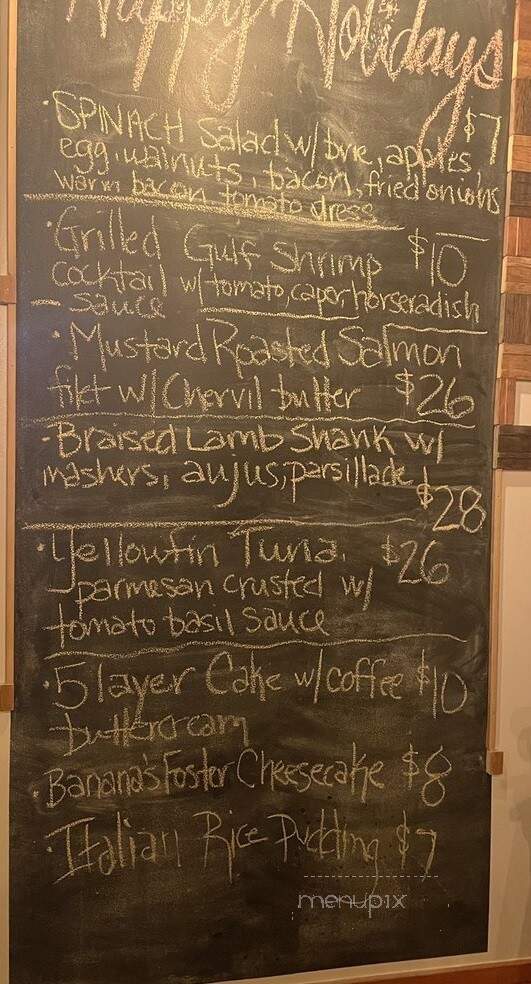 Happy Holidays
· SPINACH Salad w/ brie, apples, $7
egg, walnuts, bacon, fried onions
warm bacon tomato dress
· Grilled Gulf Shrimp $10
cocktail w/ tomato, caper, horseradish
- sauce
· Mustard Roasted Salmon
filet w/ Chervil butter $26
- Braised Lamb Shank w/
mashers, aujus, parsillade
$28
· Yellowfin Tuna $26
parmesan crusted w/
tomato basil sauce
· 5 layer Cake w/ coffee $10
buttercream
· Banana's Foster Cheesecake $8
· Italian Rice Pudding $7
menupix